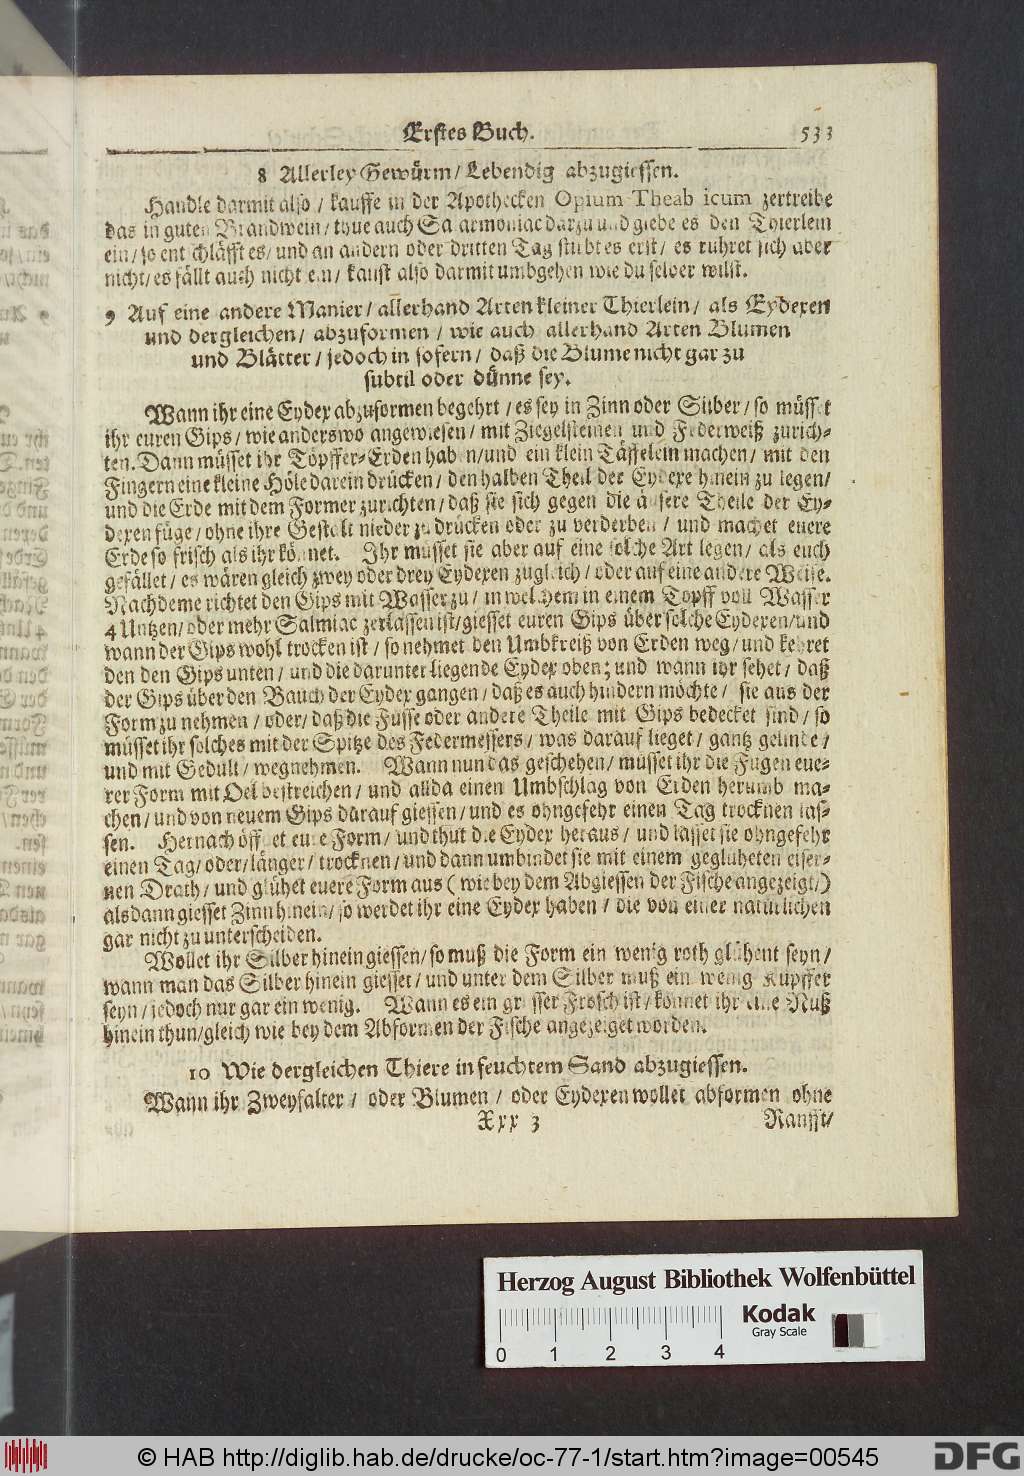 Erstes Buch. 533
8 Allerley Gewürm/ Lebendig abzugiessen.
Handle darmit also / kauffe in der Apothecken Opium Theab icum zertreibe
das in guten Brandwein/ thue auch Sa armoniac darzu und giebe es den Thierlein
ein/ so entschläfft es/ und an andern oder dritten Tag stirbt es erst/ es rühret sich aber
nicht/ es fällt auch nicht ein/ kanst also darmit umbgehen wie du selber wilst.
9 Auf eine andere Manier/ allerhand Arten kleiner Thierlein/ als Eydexen
und dergleichen/ abzuformen / wie auch allerhand Arten Blumen
und Blätter / jedoch in sofern / daß die Blume nicht gar zu
subtil oder dünne sey.
Wann ihr eine Eydex abzuformen begehrt / es sey in Zinn oder Silber/ so müsset
ihr euren Gips / wie anderswo angewiesen / mit Ziegelsteinen und Federweiß zurich-
ten. Dann müsset ihr Töpffer-Erden haben/und ein klein Täffelein machen/ mit den
Fingern eine kleine Höle darein drücken / den halben Theil der Eydexe hinein zu legen/
und die Erde mit dem Former zurichten/ daß sie sich gegen die äusere Theile der Ey-
dexen füge / ohne ihre Gestalt nieder zu drücken oder zu verderben / und machet euere
Erde so frisch als ihr könnet. Ihr müsset sie aber auf eine solche Art legen/ als euch
gefället / es wären gleich zwey oder drey Eydexen zugleich / oder auf eine andere Weise.
Nachdeme richtet den Gips mit Wasser zu / in welchem in einem Topff voll Wasser
4 Untzen/ oder mehr Salmiac zerlassen ist/giesset euren Gips über solche Eydexen/und
wann der Gips wohl trocken ist / so nehmet den Umbkreiß von Erden weg/ und kehret
den den Gips unten / und die darunter liegende Eydex oben; und wann ihr sehet / daß
der Gips über den Bauch der Eydex gangen / daß es auch hindern möchte / sie aus der
Form zu nehmen / oder/ daß die Füsse oder andere Theile mit Gips bedecket sind / so
müsset ihr solches mit der Spitze des Federmessers / was darauf lieget / gantz gelinde /
und mit Gedult / wegnehmen. Wann nun das geschehen/ müsset ihr die Fugen eue-
rer Form mit Oel bestreichen / und allda einen Umbschlag von Erden herumb ma-
chen / und von neuem Gips darauf giessen / und es ohngefehr einen Tag trocknen las-
sen. Hernach öffnet eure Form / und thut die Eydex heraus / und lasset sie ohngefehr
einen Tag/ oder/ länger / trocknen / und dann umbindet sie mit einem geglüheten eiser-
nen Drath / und glühet euere Form aus ( wie bey dem Abgiessen der Fische angezeigt/)
alsdann giesset Zinn hinein/ so werdet ihr eine Eydex haben / die von einer natürlichen
gar nicht zu unterscheiden.
Wollet ihr Silber hinein giessen/ so muß die Form ein wenig roth glühent seyn /
wann man das Silber hinein giesset / und unter dem Silber muß ein wenig Kupffer
seyn / jedoch nur gar ein wenig. Wann es ein grosser Frosch ist / könnet ihr eine Nuß
hinein thun/gleich wie bey dem Abformen der Fische angezeiget worden.
10 Wie dergleichen Thiere in feuchtem Sand abzugiessen.
Wann ihr Zweyfalter / oder Blumen / oder Eydexen wollet abformen ohne
Xxx 3 Ranfft/
Herzog August Bibliothek Wolfenbüttel
Kodak
Gray Scale
0 1 2 3 4
© HAB http://diglib.hab.de/drucke/oc-77-1/start.htm?image=00545
DFG